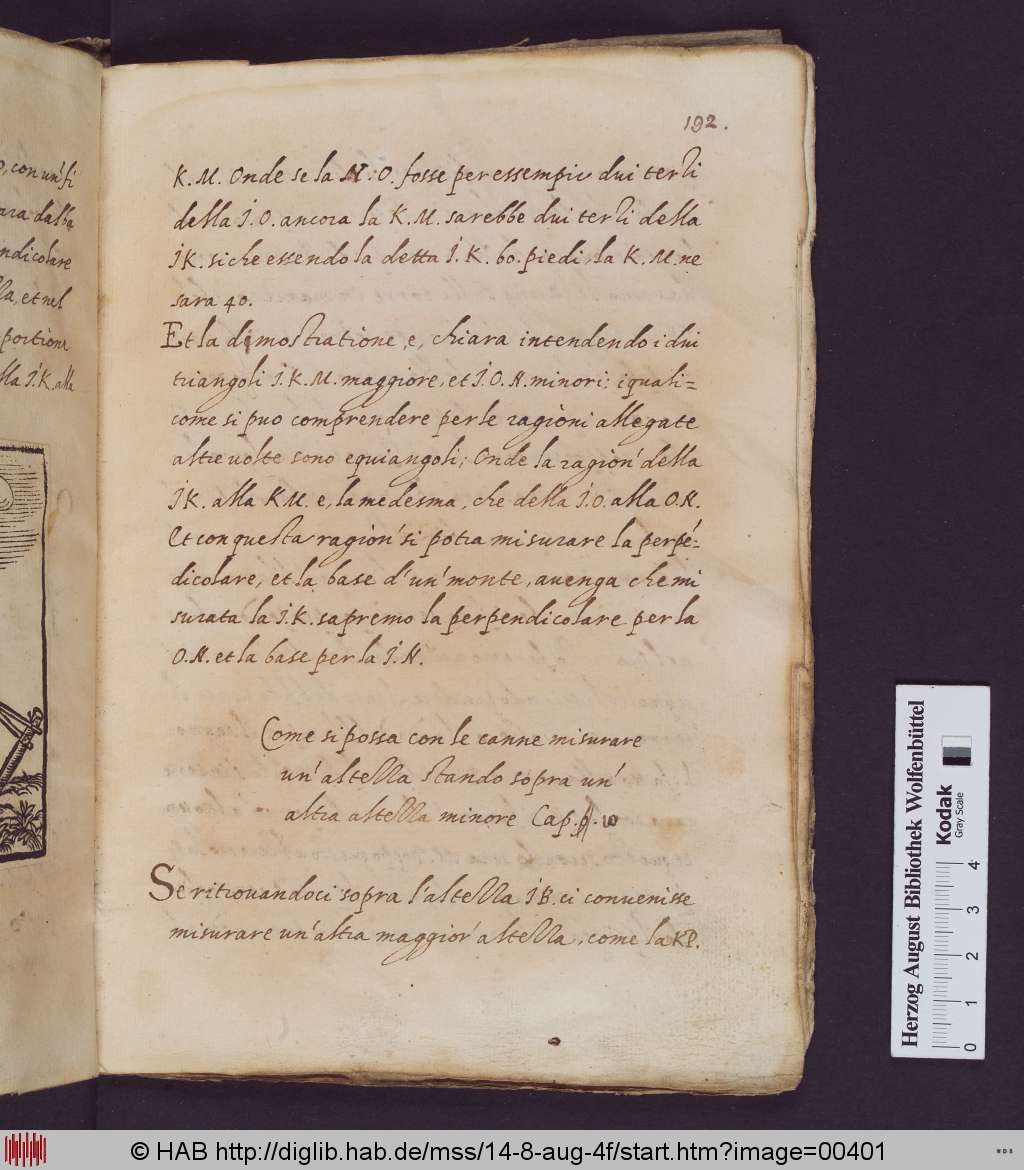 192.
K.M. Onde se la N.O. fosse per essempio dui terzi
della I.O. ancora la K.M. sarebbe dui terzi della
IK. si che essendo la detta I.K. 60. piedi, la K.M. ne
sara 40.
Et la dimostratione, e, chiara intendendo i dui
triangoli I.K.M. maggiore, et I.O.N. minori; i quali=
come si puo comprendere per le ragioni allegate
altre uolte sono equiangoli; Onde la ragion' della
IK. alla KM. e, la medesma, che della I.O. alla O.N.
Et con questa ragion' si potra misurare la perpé=
dicolare, et la base d'un' monte, auenga che mi
surata la I.K. sapremo la perpendicolare per la
O.N. et la base per la I.N.
Come si possa con le canne misurare
un' altezza stando sopra un'
altra altezza minore Cap. 10
Se ritrouandoci sopra l'altezza IB. ci conuenisse
misurare un' altra maggior' altezza, come la KP.
con un' fi
ara dalba
ndicolare
la, et nel
portione
lla I.K. alla
Herzog August Bibliothek Wolfenbüttel
Kodak
Gray Scale
0 1 2 3 4
© HAB http://diglib.hab.de/mss/14-8-aug-4f/start.htm?image=00401